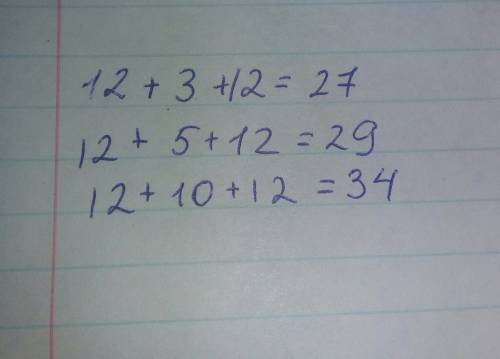 12 + 3 + 12 = 27
12 + 5 + 12 = 29
12 + 10 + 12 = 34